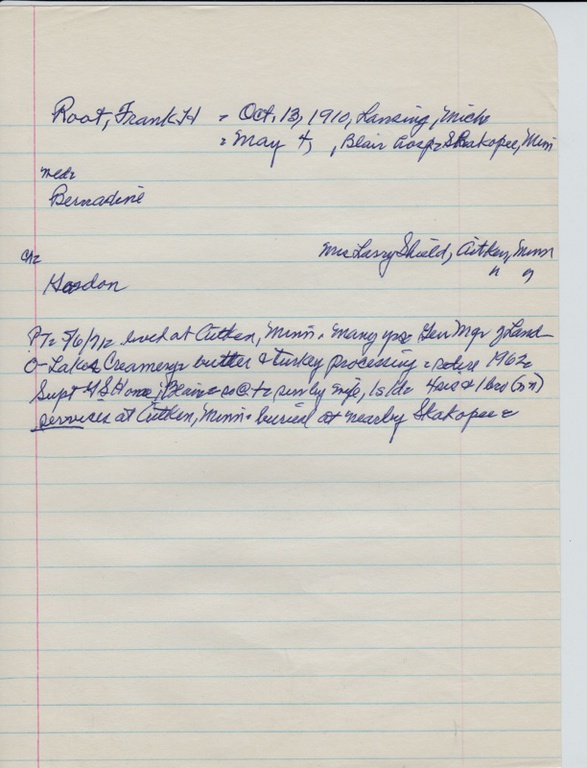 Root, Frank H = Oct. 13, 1910, Lansing, Mich=
= May 4, , Blair Hosp = Shakopee, Minn
med=
Bernadine
Mrs Larry Shield, Aitken, Minn
ch=
Gordon " "
PT= 5/6/71= lived at Aitken, Minn = many yrs Gen Mgr of Land
O Lakes Creamery = butter & turkey processing = retire 1962=
Supt Home, Blaine = surv by wife, 1s 1d= 4 sis & 1 bro (nn)
services at Aitken, Minn = buried at nearby Shakopee =